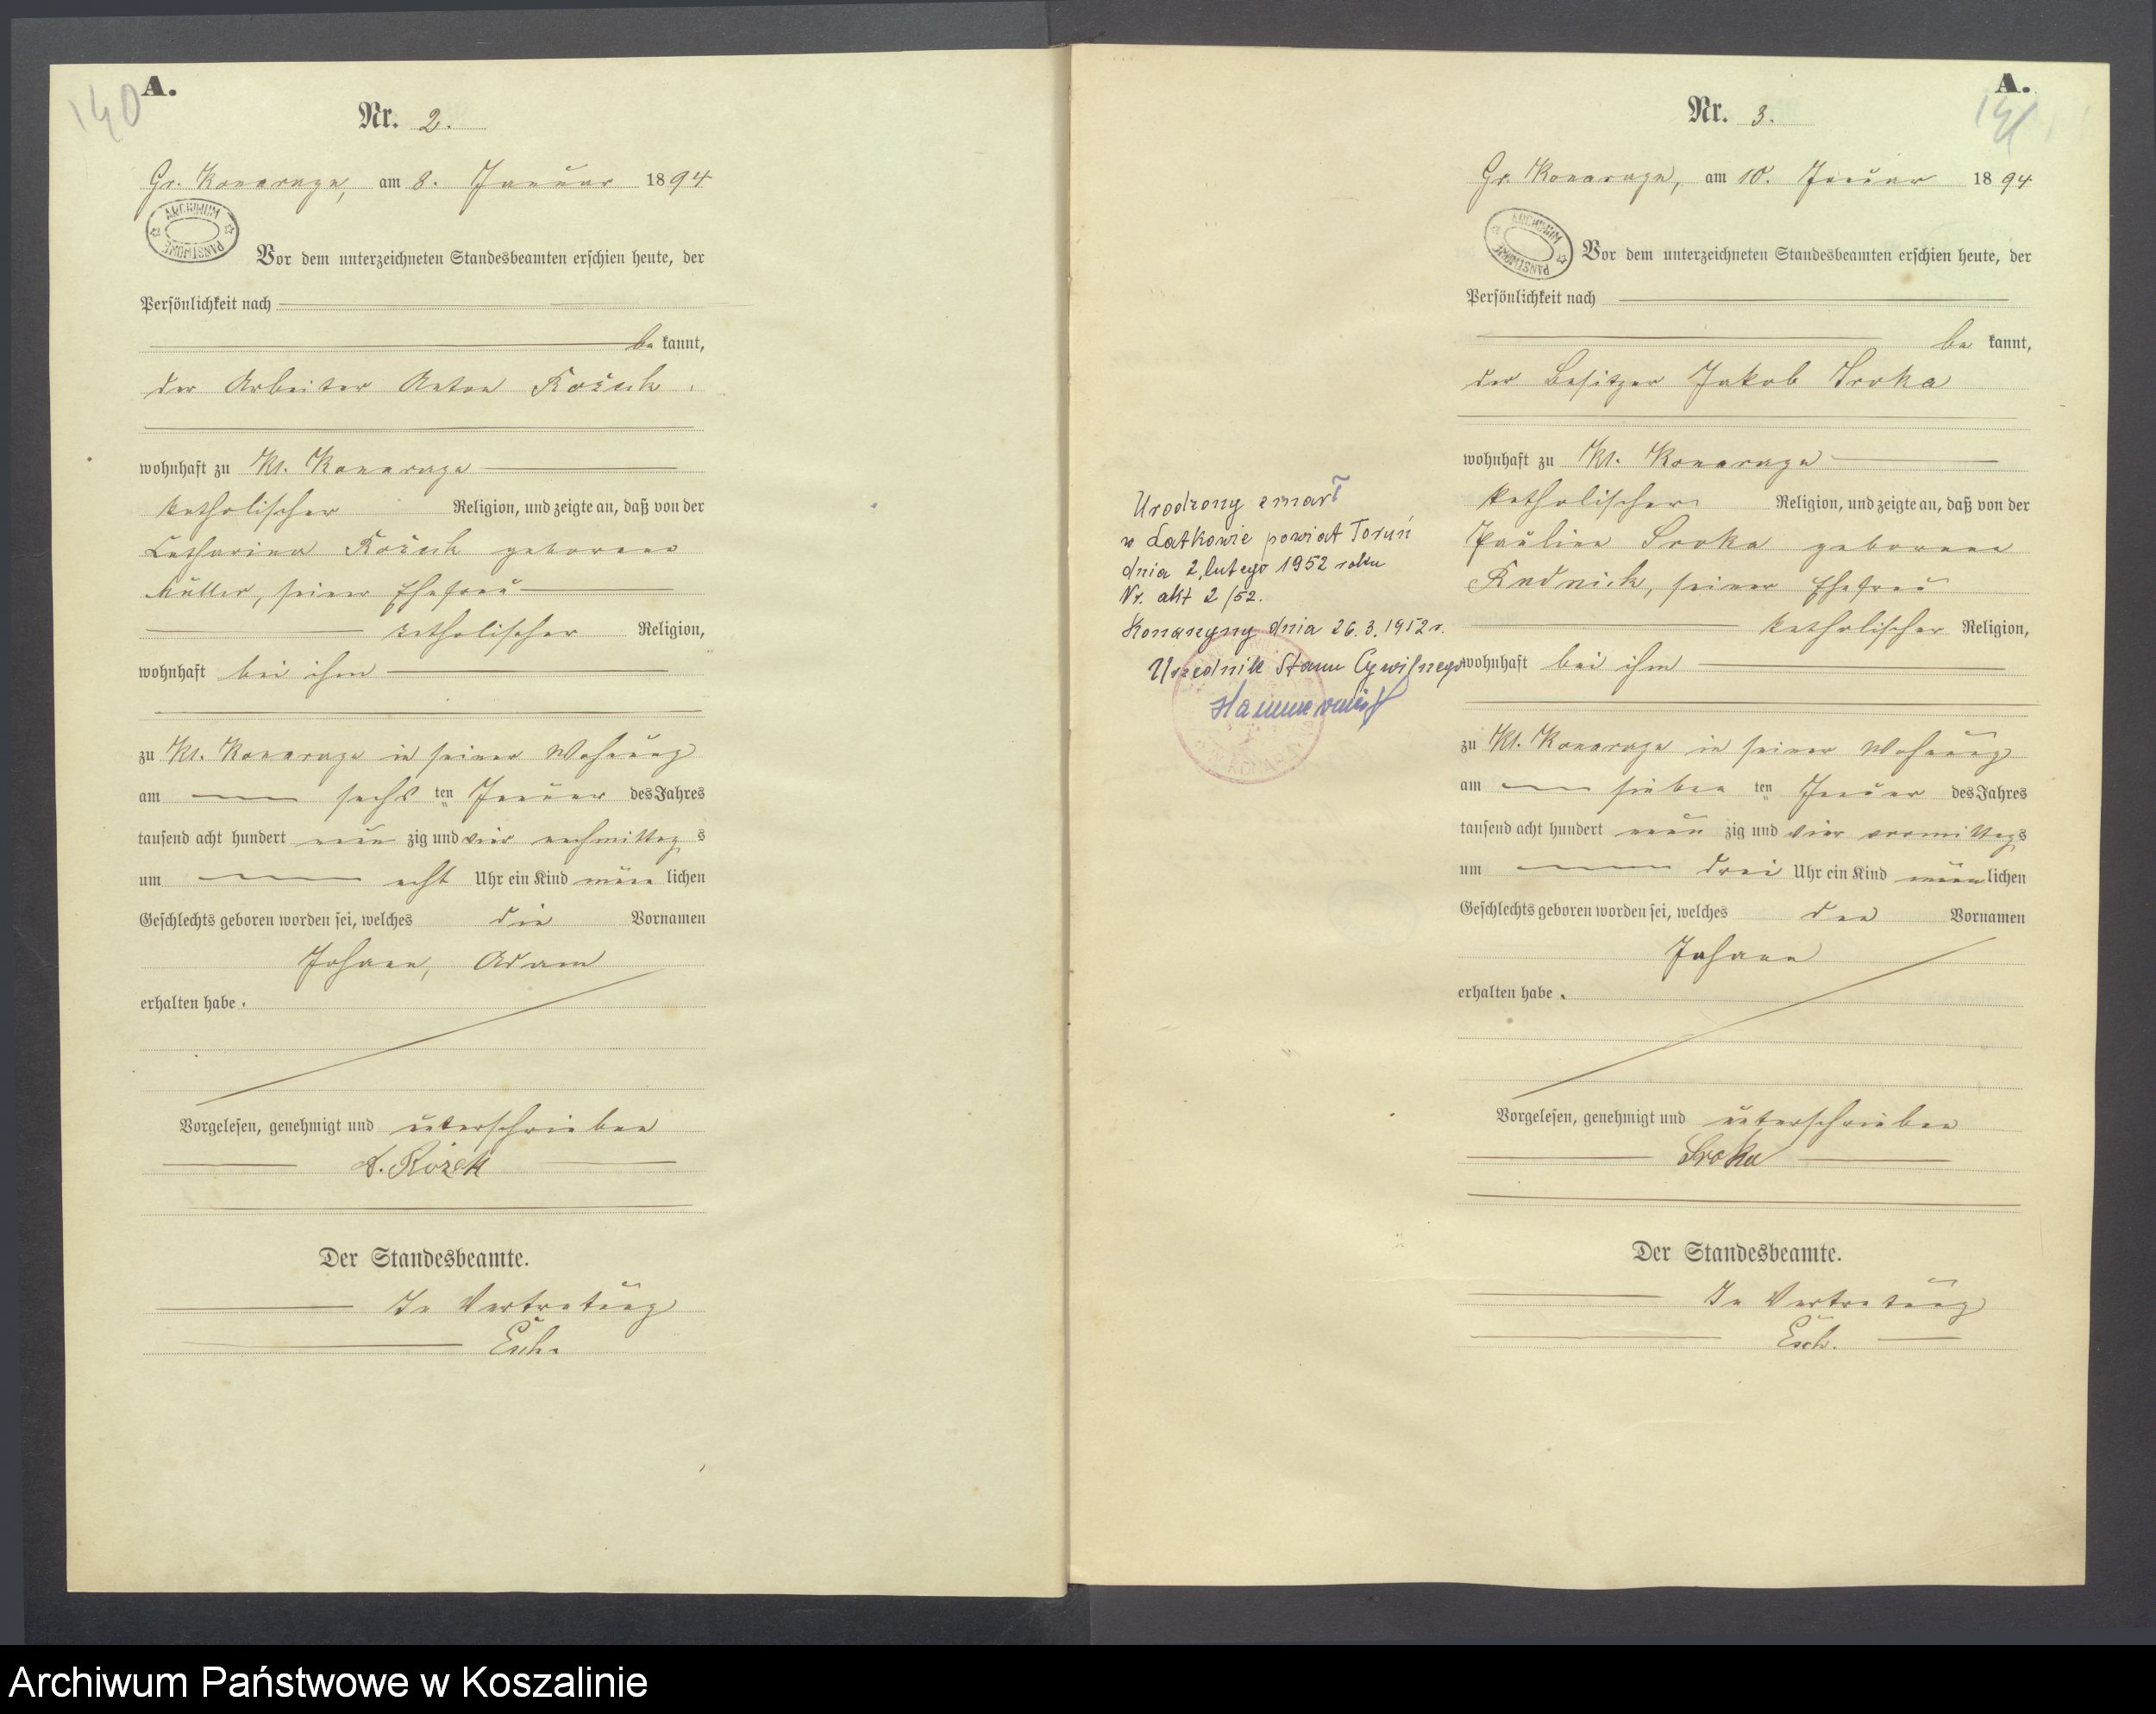 140
A.
Nr. 2.
Gr. Konarczyn, am 8. Januar 1894
ARCHIWUM PAŃSTWOWE
Vor dem unterzeichneten Standesbeamten erschien heute, der
Persönlichkeit nach
be kannt,
der Arbeiter Anton
wohnhaft zu Kl. Konarczyn
katholischer Religion, und zeigte an, daß von der
Catharina geborene
Müller, seiner Ehefrau
katholischer Religion,
wohnhaft bei ihm
zu Kl. Konarczyn in seiner Wohnung
am sechs ten Januar des Jahres
tausend acht hundert neun zig und vier nachmittag s
um acht Uhr ein Kind männ lichen
Geschlechts geboren worden sei, welches die Vornamen
Johann, Adam
erhalten habe.
Vorgelesen, genehmigt und unterschrieben
A. Rożek
Der Standesbeamte.
In Vertretung
Esch.
A.
141
Nr. 3.
Gr. Konarczyn, am 10. Januar 1894
ARCHIWUM PAŃSTWOWE
Vor dem unterzeichneten Standesbeamten erschien heute, der
Persönlichkeit nach
be kannt,
der Besitzer Jakob Sroka
wohnhaft zu Kl. Konarczyn
katholischer Religion, und zeigte an, daß von der
Pauline Sroka geborene
Rudnick, seiner Ehefrau
katholischer Religion,
wohnhaft bei ihm
zu Kl. Konarczyn in seiner Wohnung
am sieben ten Januar des Jahres
tausend acht hundert neun zig und vier vormittags
um drei Uhr ein Kind männ lichen
Geschlechts geboren worden sei, welches den Vornamen
Johann
erhalten habe.
Vorgelesen, genehmigt und unterschrieben
Sroka
Der Standesbeamte.
In Vertretung
Esch.
Urodzony zmarł
w Łatkowie powiat Toruń
dnia 2 lutego 1952 roku
Nr. akt 2/52.
Konarzyny dnia 26.3.1952 r.
Urzednik Stanu Cywilnego
Archiwum Państwowe w Koszalinie